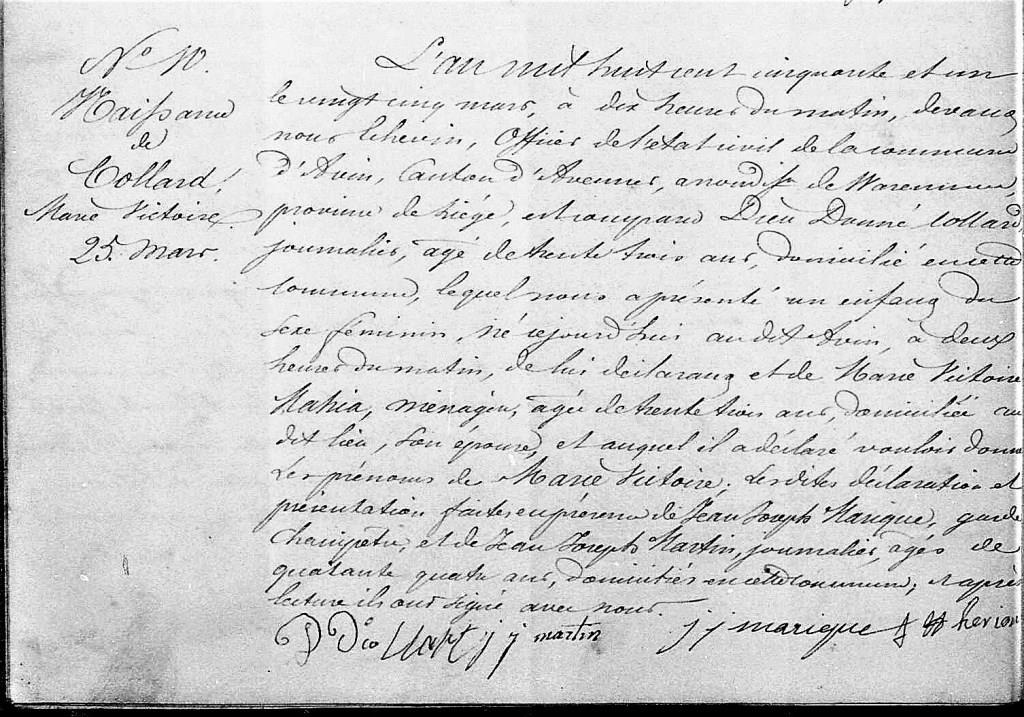 N° 10.
Naissance
de
Collard,
Marie Victoire.
25. Mars.
L'an mil huit cent cinquante et un
le vingt cinq mars, à dix heures du matin, devant
nous Echevin, Officier de l'état civil de la commune
d'Avin, Canton d'Avennes, arrondist de Waremme,
province de Liége, est comparu Dieu Donné Collard,
journalier, agé de trente trois ans, domicilié en cette
commune, lequel nous a présenté un enfant du
sexe féminin, né cejourd'hui au dit Avin, à deux
heures du matin, de lui déclarant et de Marie Victoire
Mahia, ménagère, agée de trente trois ans, domiciliée au
dit lieu, son épouse, et auquel il a déclaré vouloir donner
les prénoms de Marie Victoire. Les dites déclaration et
présentation faites en présence de Jean Joseph Marique, garde
Champêtre, et de Jean Joseph Martin, journalier, agés de
quarante quatre ans, domiciliés en cette commune; et après
lecture ils ont signé avec nous
D D Collart j j martin j j marique